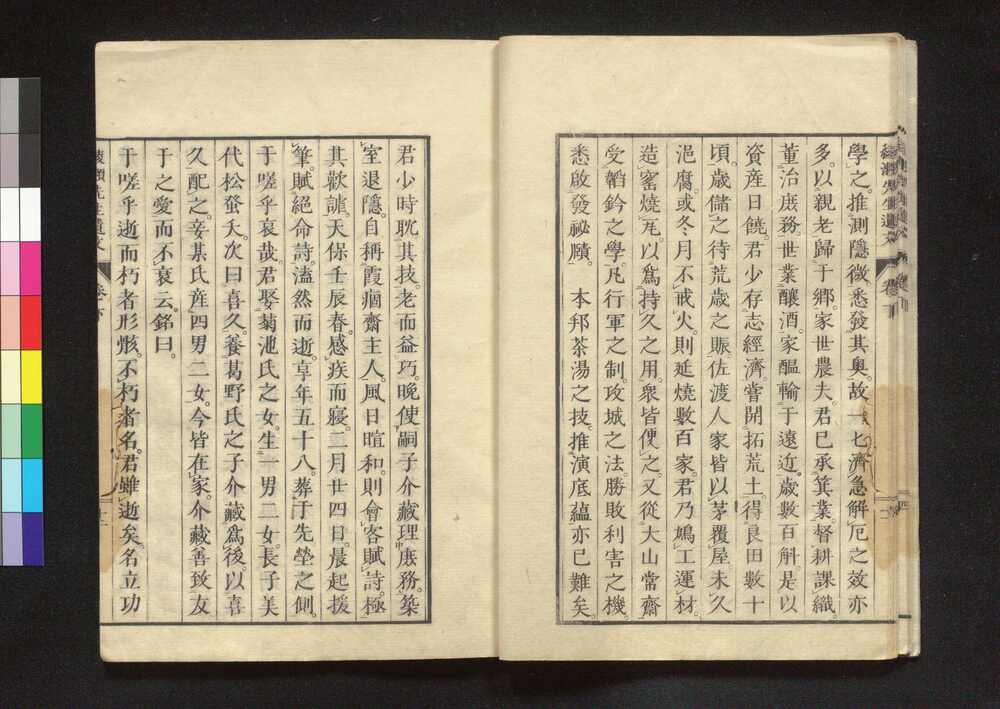 學之。推測隱微。悉發其奧。故一七濟急解厄之效亦
多。以親老歸于鄉。家世農夫。君已承箕業。督耕課織。
董治庶務。世業釀酒。家醞輸于遠近。歲數百斛。是以
資産日饒。君少存志經濟。嘗開拓荒土。得良田數十
頃。歲儲之待荒歲之賑。佐渡人家皆以茅覆屋。未久
浥腐。或冬月不戒火。則延燒數百家。君乃鳩工運材。
造窰燒瓦。以爲持久之用。衆皆便之。又從大山常齋
受韜鈐之學。凡行軍之制。攻城之法。勝敗利害之機。
悉啟發祕賾。本邦茶湯之技。推演底蘊亦已難矣。
君少時耽其技。老而益巧。晚使嗣子介藏理庶務。築
室退隱。自稱霞痼齋主人。風日暄和。則會客賦詩。極
其歡謔。天保壬辰春。感疾而寢。三月廿四日。晨起援
筆。賦絕命詩。溘然而逝。享年五十八。葬于先塋之側。
于嗟乎哀哉。君娶菊池氏之女。生一男二女。長子美
代松蚤夭。次曰喜久。養葛野氏之子介藏爲後。以喜
久配之。妾某氏産四男二女。今皆在家。介藏善致友
于之愛而不衰云。銘曰。
于嗟乎逝而朽者形骸。不朽者名。君雖逝矣。名立功
先生遺文 卷下 十二